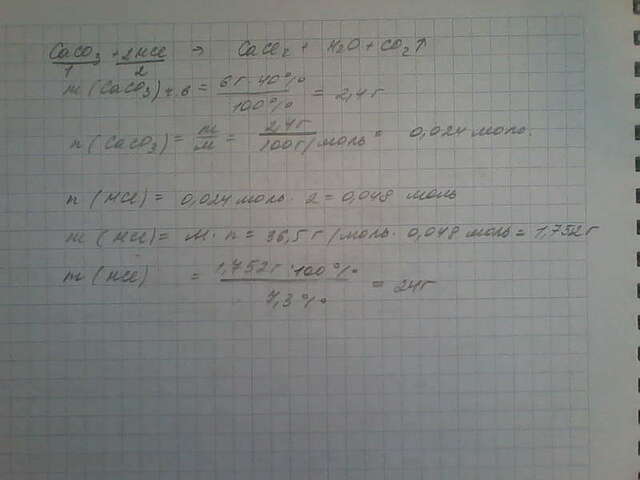 CaCO3 + 2HCl → CaCl2 + H2O + CO2↑
1 2
m (CaCO3) ч.в = 6г · 40% / 100% = 2,4г
n (CaCO3) = m/M = 2,4г / 100г/моль = 0,024 моль.
n (HCl) = 0,024 моль · 2 = 0,048 моль
m (HCl) = M · n = 36,5 г/моль · 0,048 моль = 1,752г
m (HCl) = 1,752г · 100% / 7,3% = 24г